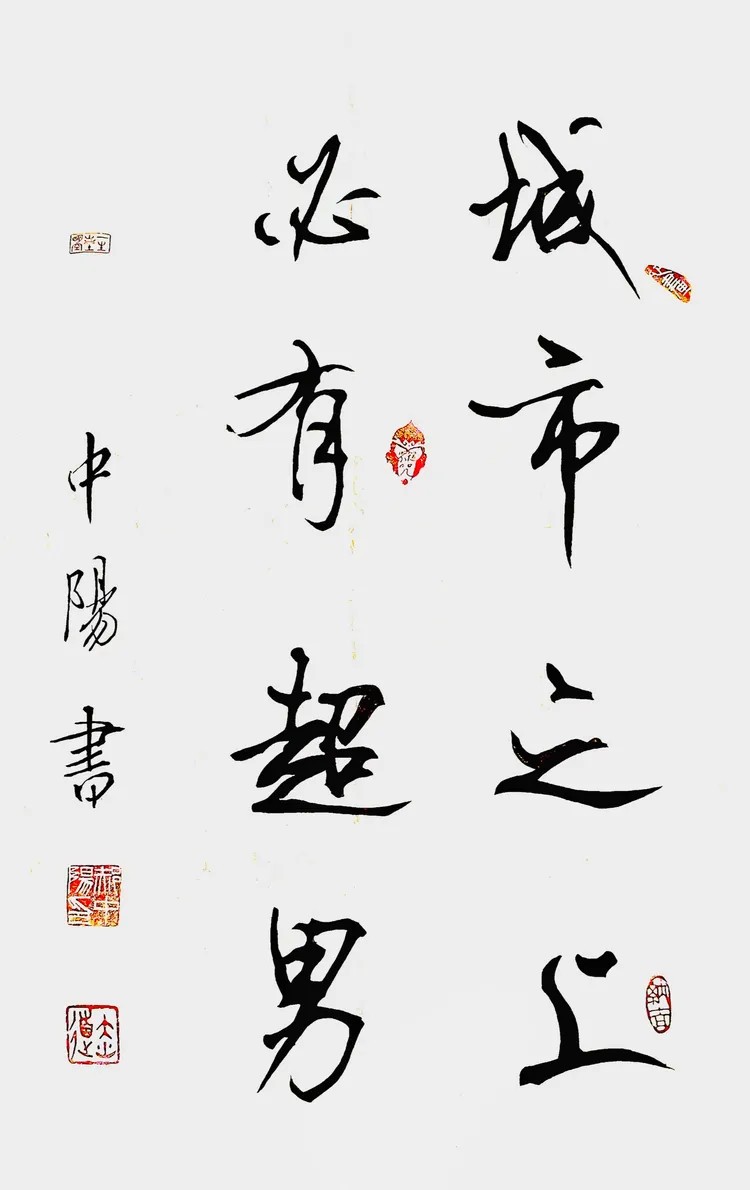 城市之上
必有超男
中陽書